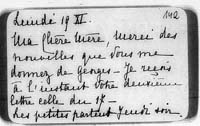 Lundi 19 XI. 142
Ma chère Mère, merci des
nouvelles que vous me
donnez de Georges - Je reçois
à l'instant votre deuxième
lettre celle du 17 -
Les petites partent Jeudi soir.